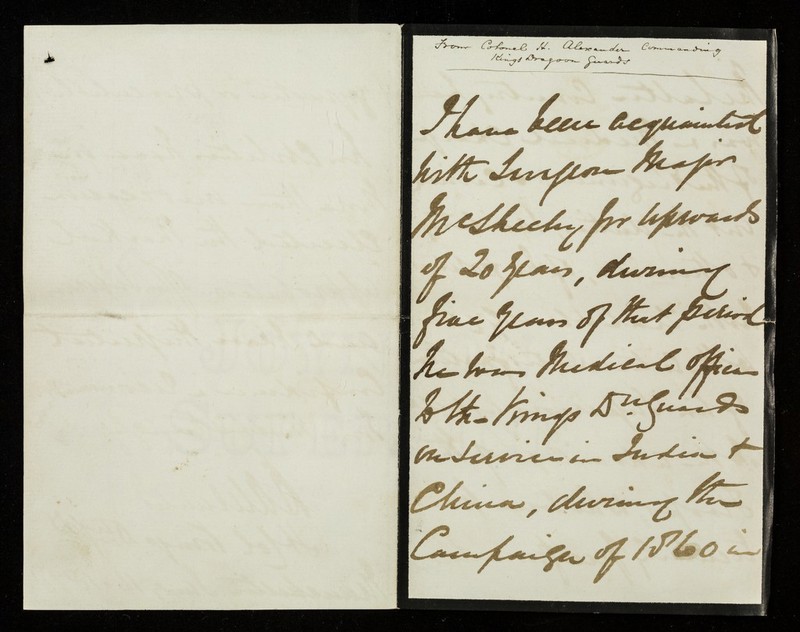 From Colonel H. Alexander Commanding
Kings Dragoon Guards
I have been acquainted
with Surgeon Major
McSheehy for upwards
of 20 years, during
five years of that period
he was Medical officer
to the Kings Dn. Guards
on service in India &
China, during the
Campaign of 1860 in